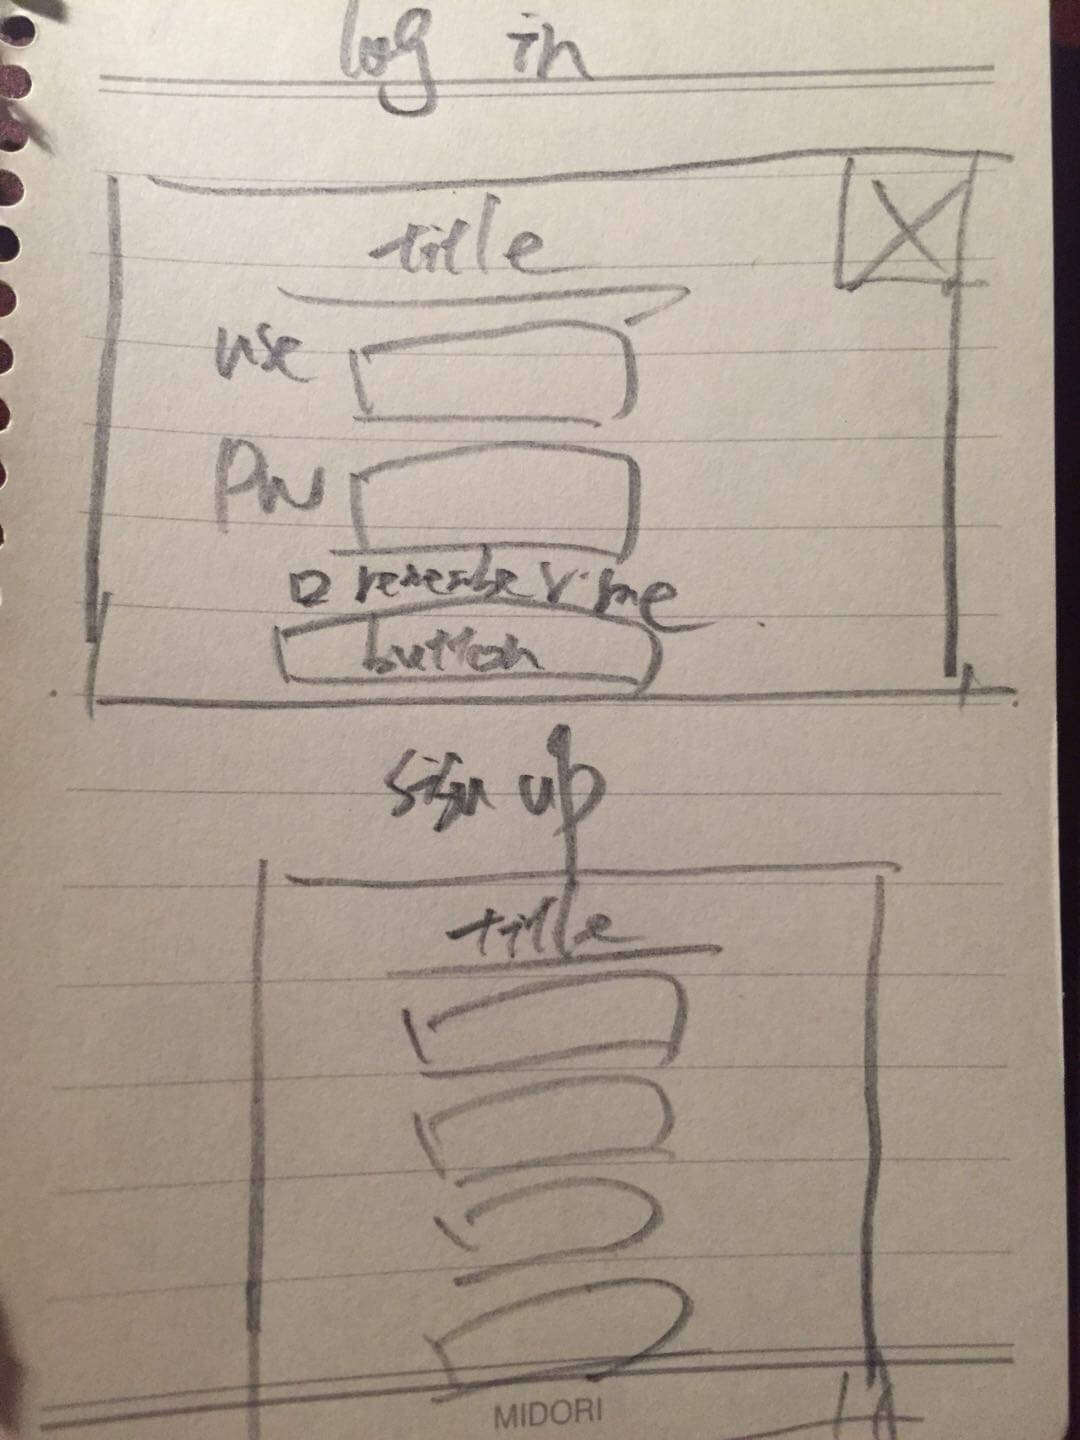 log in
title
use
PW
remember me
button
sign up
title
MIDORI